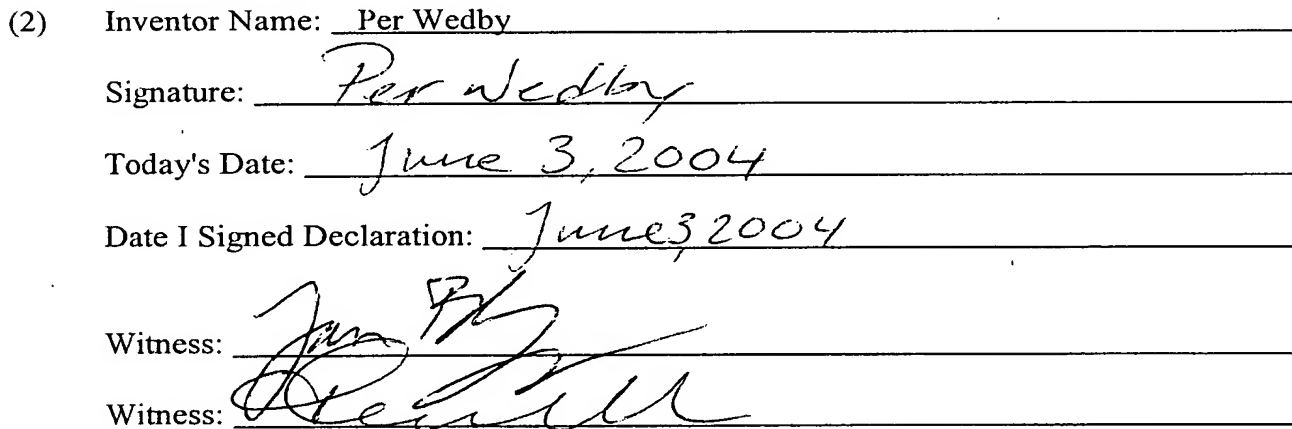 (2) Inventor Name: Per Wedby
Signature: Per Wedby
Today's Date: June 3, 2004
Date I Signed Declaration: June 3 2004
Witness:
Witness: